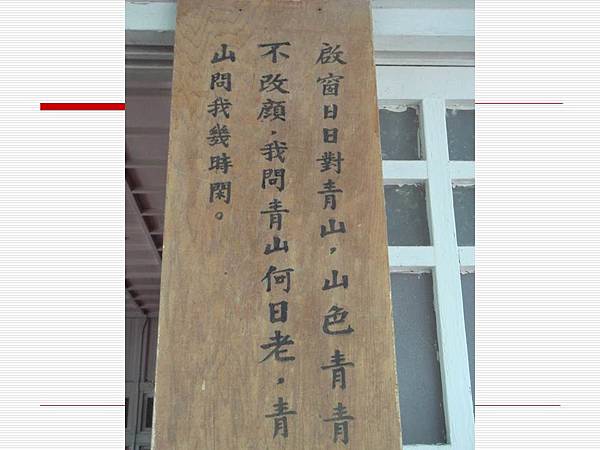 啟窗日日對青山，山色青青
不改顏，我問青山何日老，青
山問我幾時閑。